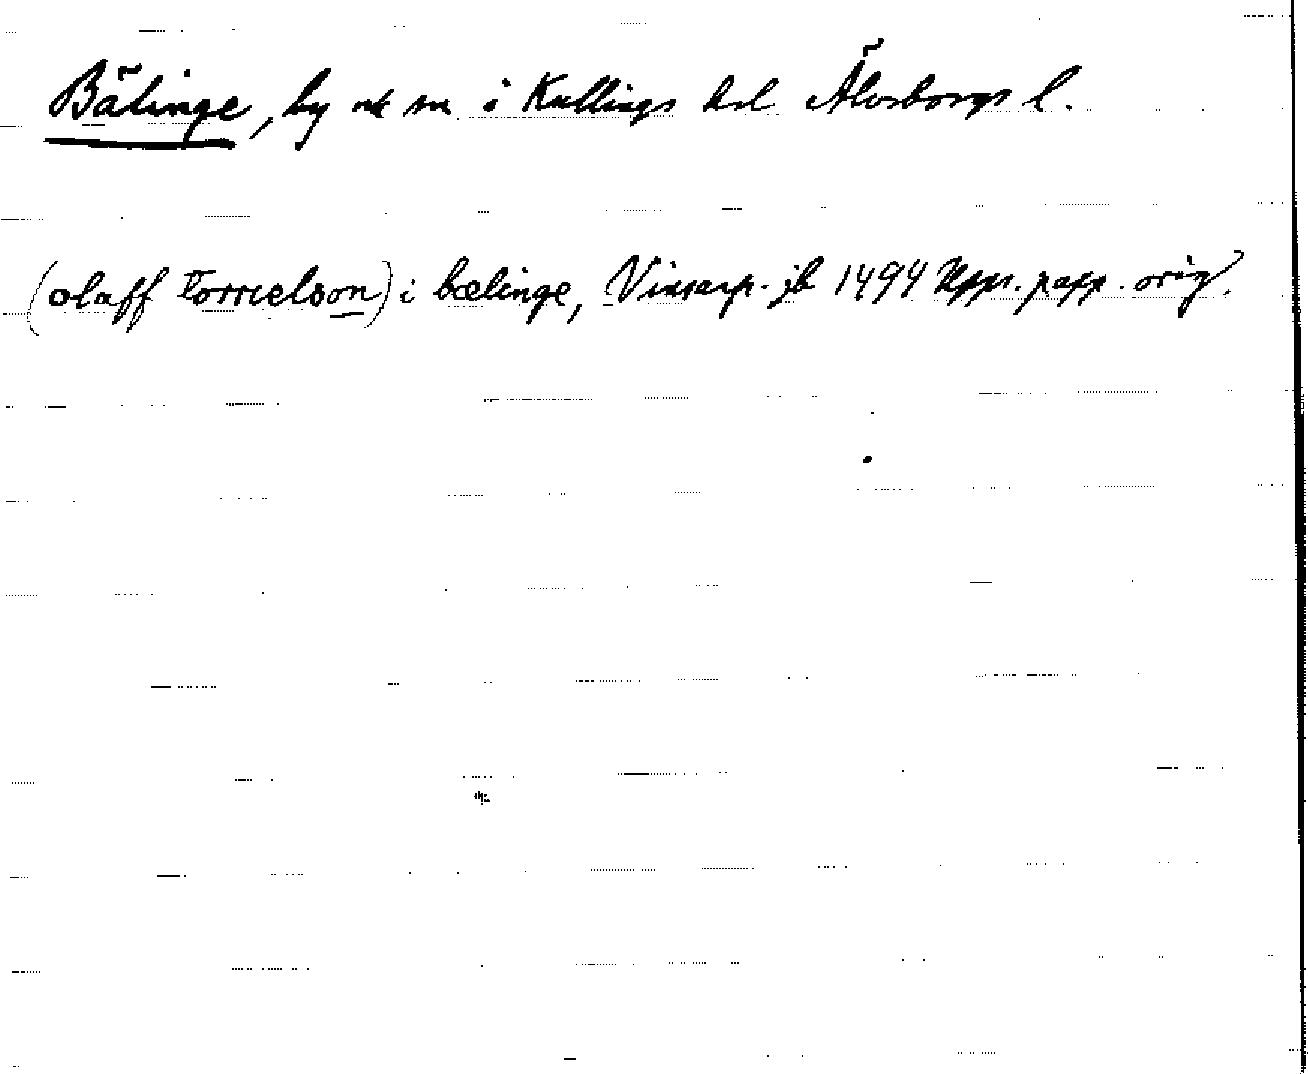 Bälinge, by ok sn i Kullings hd Älvsborgs l.
(olaff Torrielson) i bælinge, Vinsarp. jb 1494 Upps. papp. orig.